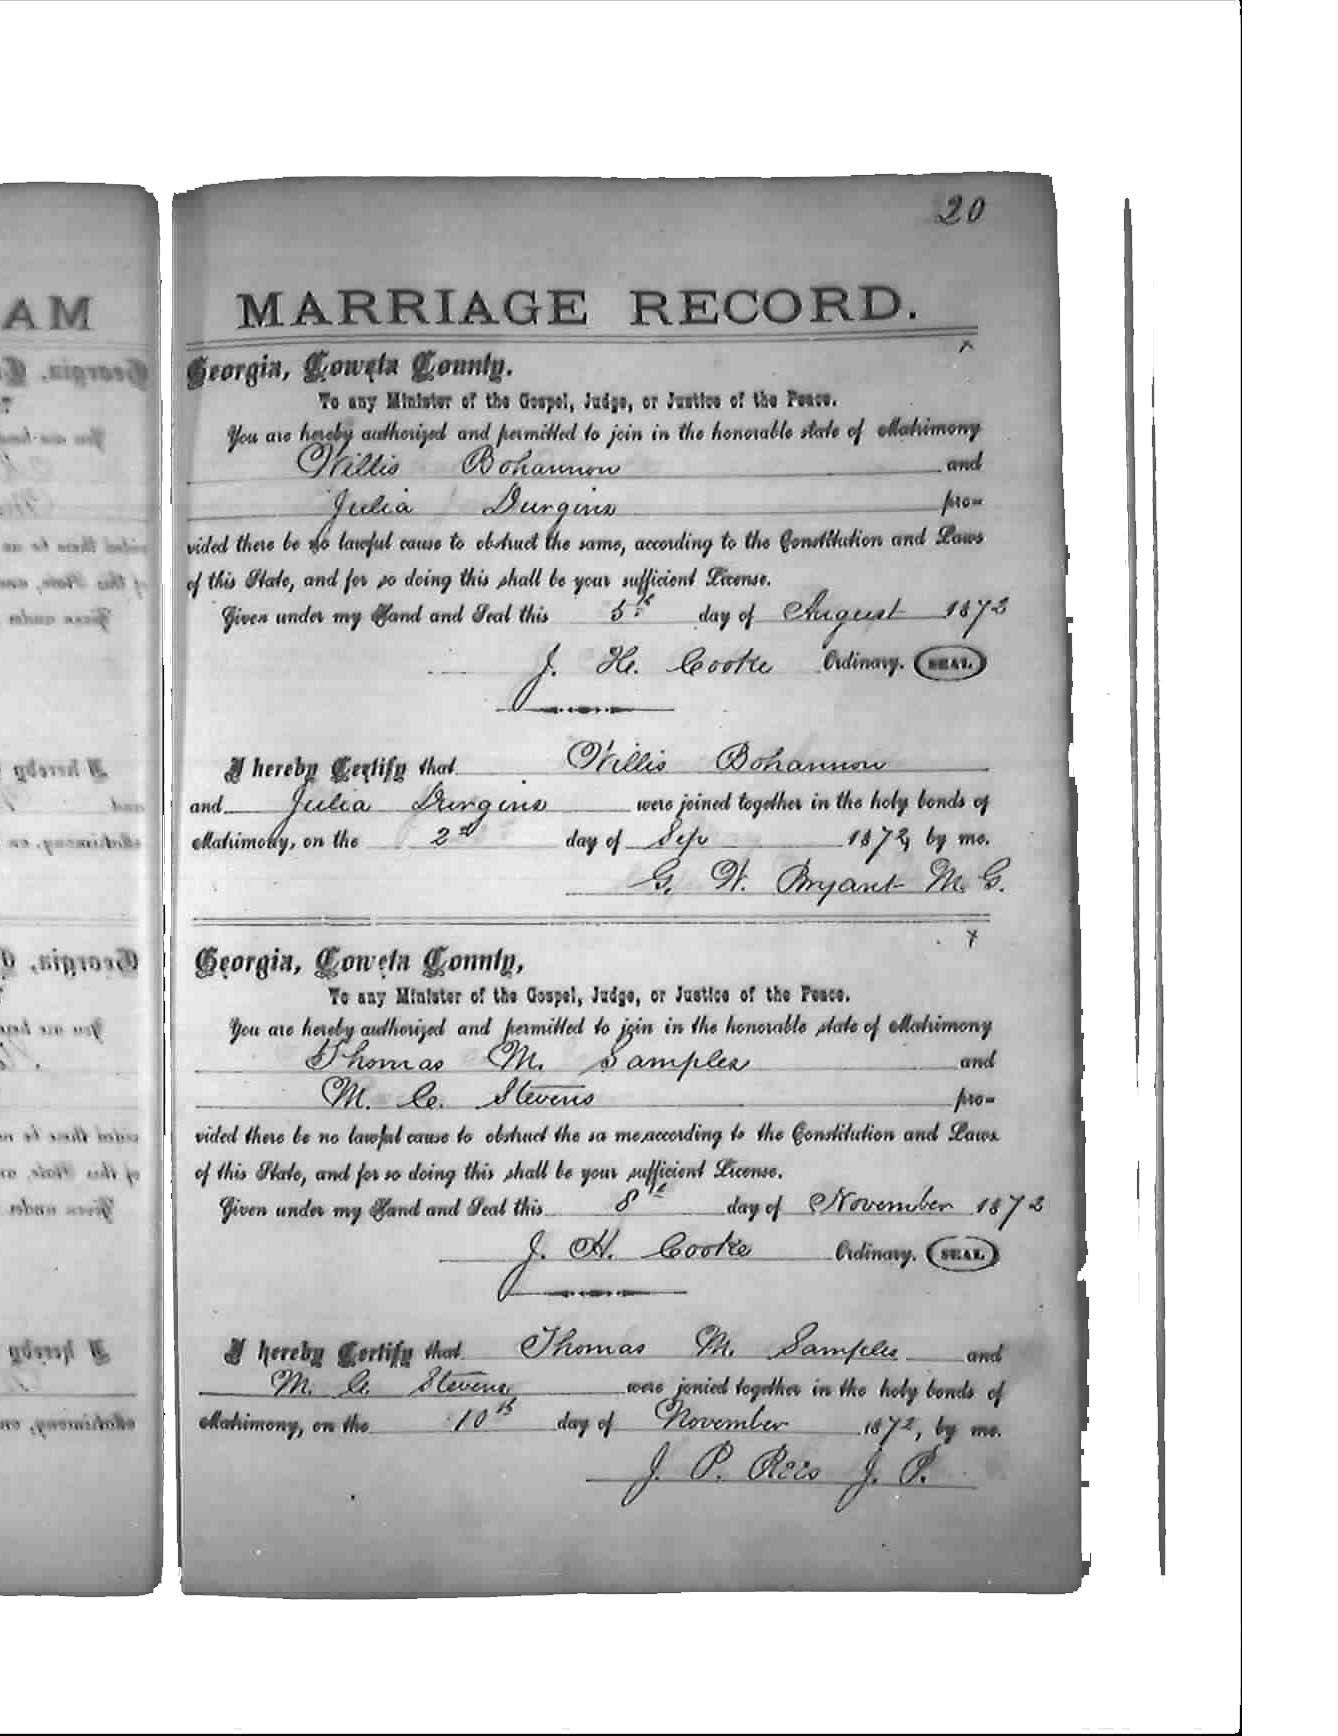 20
MARRIAGE RECORD.
Georgia, Coweta County.
To any Minister of the Gospel, Judge, or Justice of the Peace.
You are hereby authorized and permitted to join in the honorable state of Matrimony
Willis Bohannon and
Julia Durgins pro=
vided there be no lawful cause to obstruct the same, according to the Constitution and Laws
of this State, and for so doing this shall be your sufficient License.
Given under my Hand and Seal this 5th day of August 1872
J. H. Cooke Ordinary. SEAL
I hereby Certify that Willis Bohannon
and Julia Durgins were joined together in the holy bonds of
Matrimony, on the 2d day of Sep 1872, by me.
G. W. Bryant M. G.
Georgia, Coweta County,
To any Minister of the Gospel, Judge, or Justice of the Peace.
You are hereby authorized and permitted to join in the honorable state of Matrimony
Thomas M. Samples and
M. C. Stevens pro=
vided there be no lawful cause to obstruct the sa me,according to the Constitution and Laws
of this State, and for so doing this shall be your sufficient License.
Given under my Hand and Seal this 8th day of November 1872
J. H. Cooke Ordinary. SEAL
I hereby Certify that Thomas M. Samples and
M. C. Stevens were jonied together in the holy bonds of
Matrimony, on the 10th day of November 1872, by me.
J. P. Rees J. P.